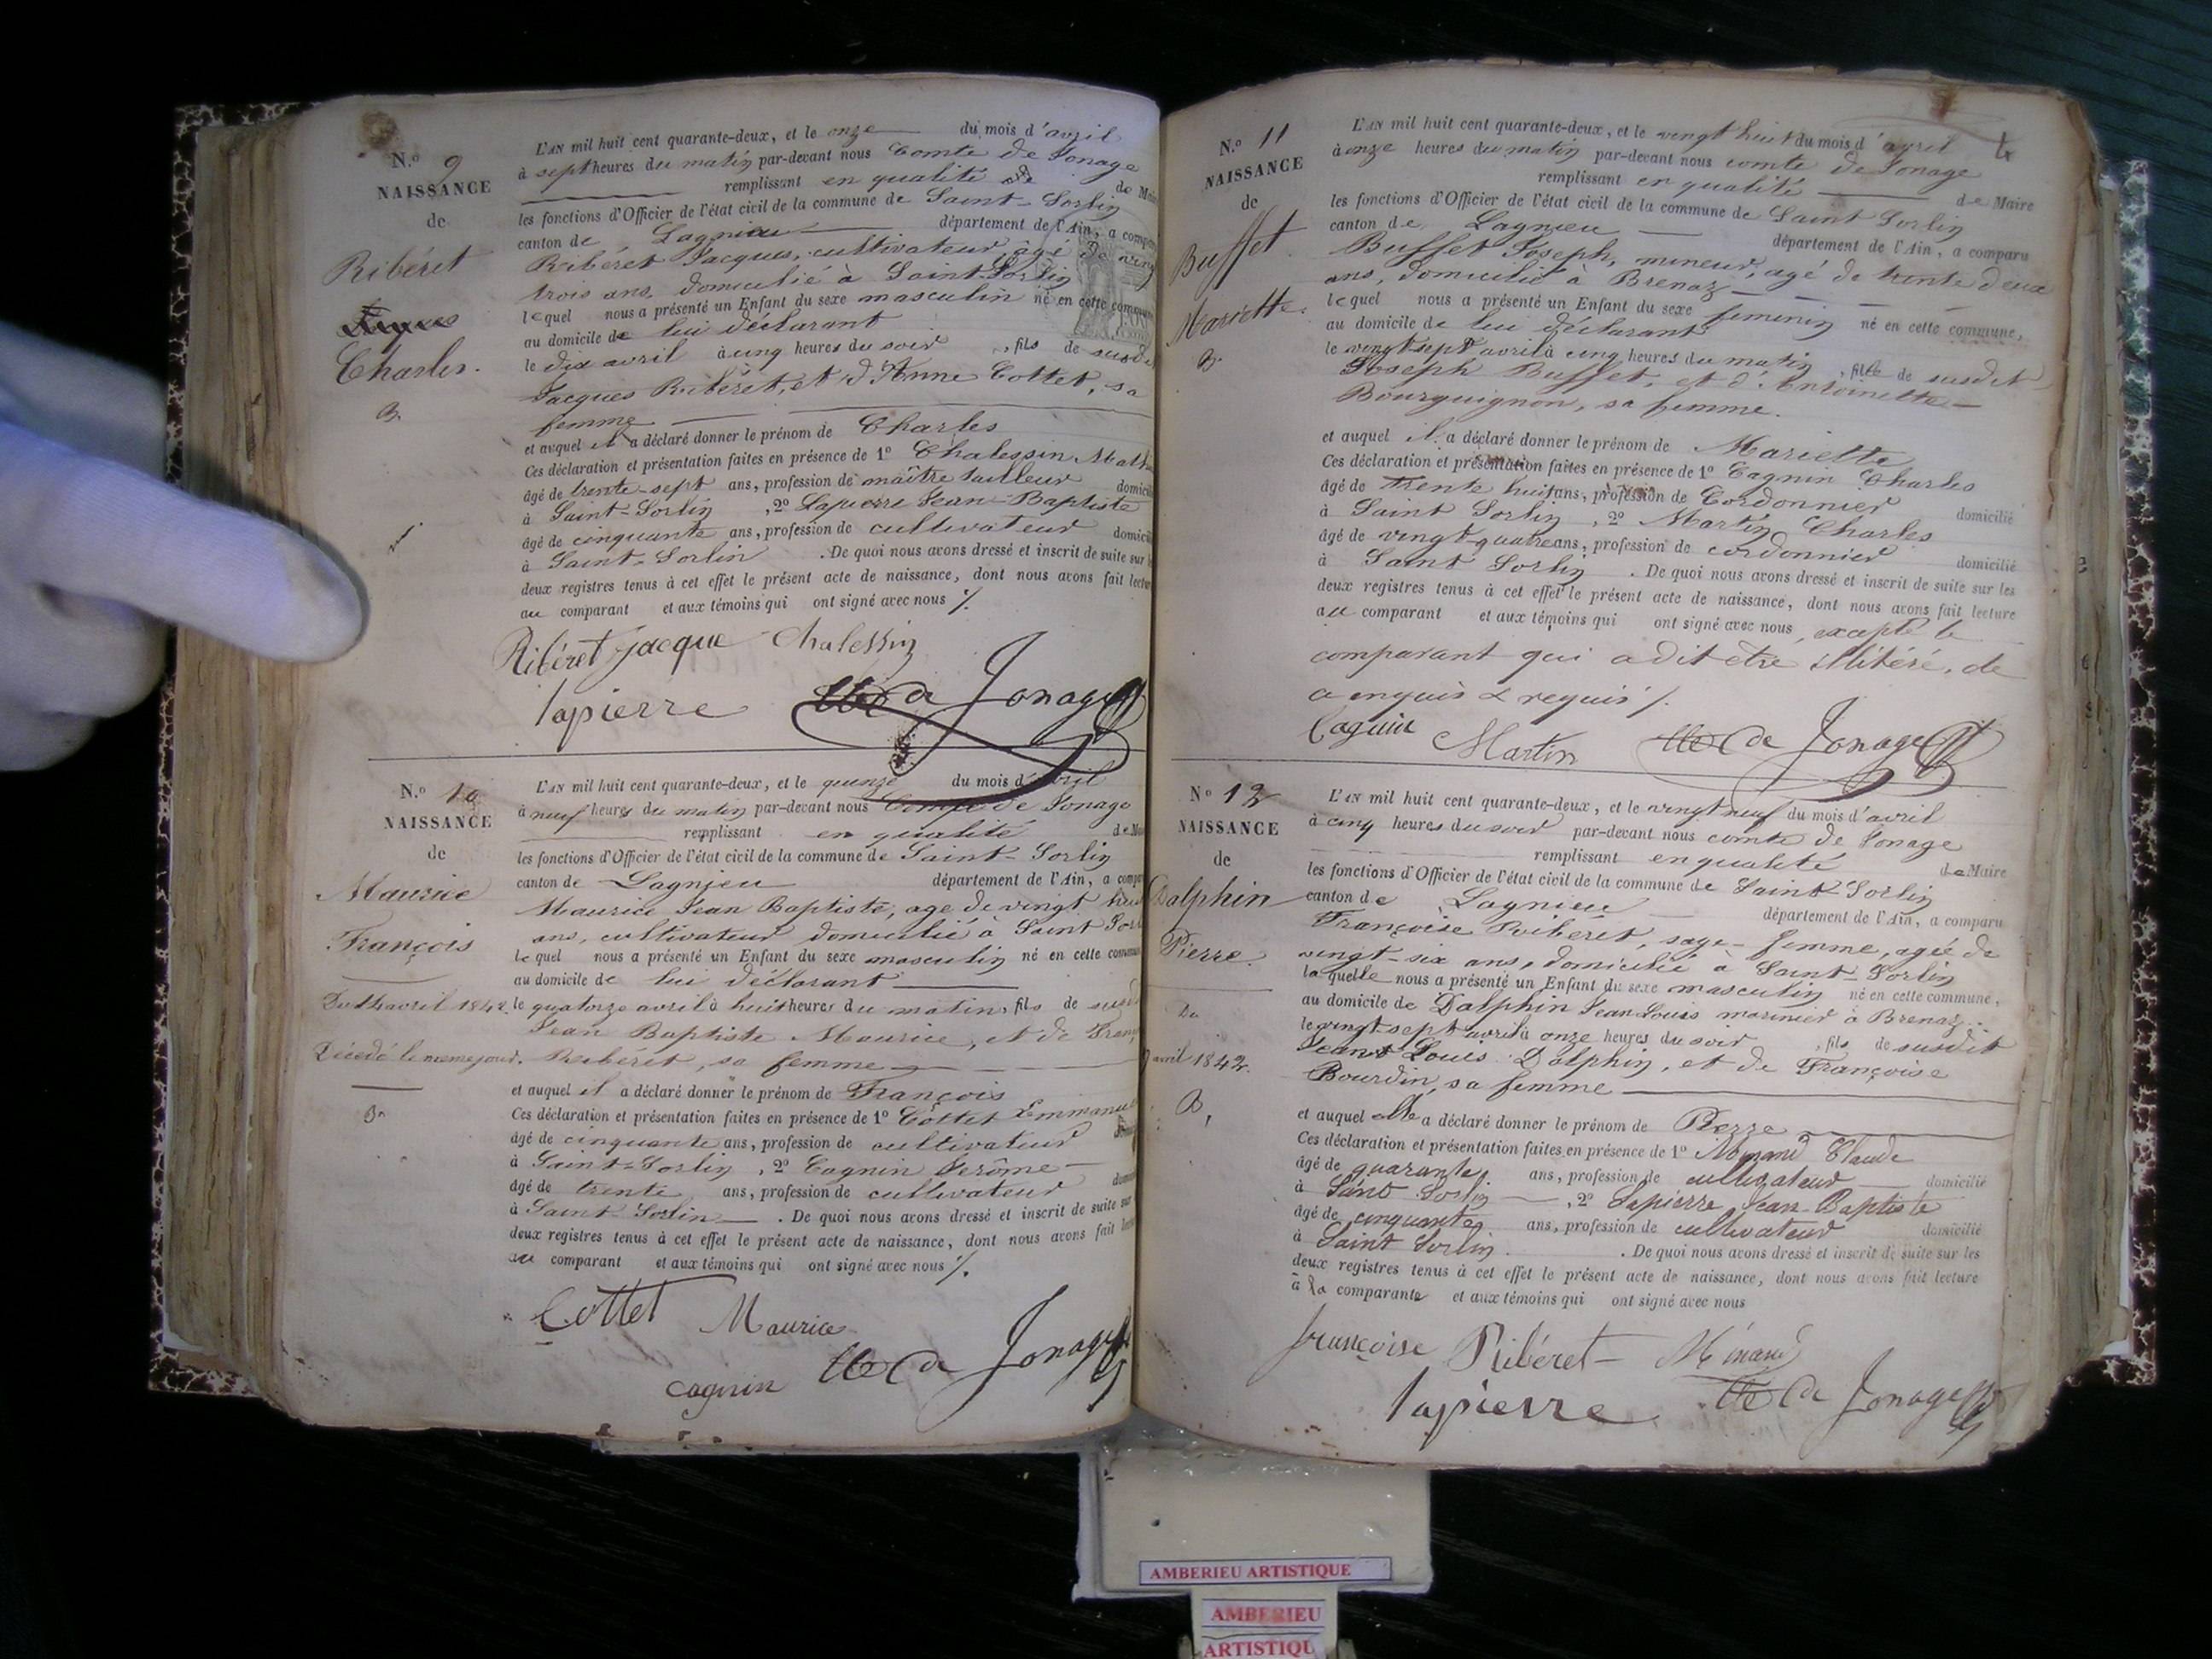 N.º 9
NAISSANCE
de
Ribéret
Charles.
B.
L'AN mil huit cent quarante-deux, et le onze du mois d'avril
à sept heures du matin par-devant nous Comte de Jonage
remplissant en qualité de Mai
les fonctions d'Officier de l'état civil de la commune de Saint-Sorlin
canton de Lagnieu département de l'Ain, a compa
Ribéret Jacques, cultivateur, âgé de ving
trois ans, domicilié à Saint-Sorlin
lequel nous a présenté un Enfant du sexe masculin né en cette commun
au domicile de lui déclarant
le dix avril à cinq heures du soir, fils de susdi
Jacques Ribéret, et d'Anne Cottet, sa
femme
et auquel il a déclaré donner le prénom de Charles
Ces déclaration et présentation faites en présence de 1º Chalessin Math
âgé de trente-sept ans, profession de maître tailleur domicil
à Saint-Sorlin, 2º Lapierre Jean-Baptiste
âgé de cinquante ans, profession de cultivateur domicil
à Saint-Sorlin. De quoi nous avons dressé et inscrit de suite sur l
deux registres tenus à cet effet le présent acte de naissance, dont nous avons fait lectur
au comparant et aux témoins qui ont signé avec nous /.
Ribéret jacque Chalessin
lapierre Cte de Jonage
N.º 10
NAISSANCE
de
Maurice
François
Du 14 avril 1842.
Décédé le même jour.
B.
L'AN mil huit cent quarante-deux, et le quinze du mois d'avril
à neuf heures du matin par-devant nous Comte de Jonage
remplissant en qualité de Mai
les fonctions d'Officier de l'état civil de la commune de Saint-Sorlin
canton de Lagnieu département de l'Ain, a compa
Maurice Jean Baptiste, age de vingt huit
ans, cultivateur domicilié à Saint Sorl
lequel nous a présenté un Enfant du sexe masculin né en cette commun
au domicile de lui déclarant
le quatorze avril à huit heures du matin, fils de susd
Jean Baptiste Maurice, et de Fran
Ribéret, sa femme
et auquel il a déclaré donner le prénom de François
Ces déclaration et présentation faites en présence de 1º Cottet Emmanuel
âgé de cinquante ans, profession de cultivateur
à Saint-Sorlin, 2º Cagnin Jerôme
âgé de trente ans, profession de cultivateur domi
à Saint-Sorlin. De quoi nous avons dressé et inscrit de suite sur
deux registres tenus à cet effet le présent acte de naissance, dont nous avons fait lect
au comparant et aux témoins qui ont signé avec nous /.
Cottet Maurice
cagnin Cte de Jonage
4
N.º 11
NAISSANCE
de
Buffet
Mariette.
B.
L'AN mil huit cent quarante-deux, et le vingt huit du mois d'avril
à onze heures du matin par-devant nous comte de Jonage
remplissant en qualité de Maire
les fonctions d'Officier de l'état civil de la commune de Saint Sorlin
canton de Lagnieu département de l'Ain, a comparu
Buffet Joseph, mineur, agé de trente deux
ans, domicilié à Brenaz
lequel nous a présenté un Enfant du sexe feminin né en cette commune,
au domicile de lui déclarant
le vingt-sept avril à cinq heures du matin, fille de susdit
Joseph Buffet, et d'Antoinette
Bourguignon, sa femme.
et auquel il a déclaré donner le prénom de Mariette
Ces déclaration et présentation faites en présence de 1º Cagnin Charles
âgé de trente huit ans, profession de Cordonnier domicilié
à Saint Sorlin, 2º Martin Charles
âgé de vingt-quatre ans, profession de cordonnier domicilié
à Saint Sorlin. De quoi nous avons dressé et inscrit de suite sur les
deux registres tenus à cet effet le présent acte de naissance, dont nous avons fait lecture
au comparant et aux témoins qui ont signé avec nous, excepté le
comparant qui a dit être illitéré, de
ce enquis & requis /.
Cagnin Martin Cte de Jonage
Nº 12
NAISSANCE
de
Dalphin
Pierre.
Du
avril 1842.
B.
L'AN mil huit cent quarante-deux, et le vingt neuf du mois d'avril
à cinq heures du soir par-devant nous comte de Jonage
remplissant en qualité de Maire
les fonctions d'Officier de l'état civil de la commune de Saint-Sorlin
canton de Lagnieu département de l'Ain, a comparu
Françoise Ribéret, sage-femme, agée de
vingt-six ans, domiciliée à Saint-Sorlin
laquelle nous a présenté un Enfant du sexe masculin né en cette commune,
au domicile de Dalphin Jean Louis marinier à Brenaz
le vingt sept avril à onze heures du soir, fils de susdit
Jean Louis Dalphin, et de Françoise
Bourdin, sa femme
et auquel elle a déclaré donner le prénom de Pierre
Ces déclaration et présentation faites en présence de 1º Minand Claude
âgé de quarante ans, profession de cultivateur domicilié
à Saint Sorlin, 2º Lapierre Jean-Baptiste
âgé de cinquante ans, profession de cultivateur domicilié
à Saint Sorlin. De quoi nous avons dressé et inscrit de suite sur les
deux registres tenus à cet effet le présent acte de naissance, dont nous avons fait lecture
à la comparante et aux témoins qui ont signé avec nous
françoise Ribéret Minand
lapierre Cte de Jonage
AMBERIEU ARTISTIQUE
AMBERIEU
ARTISTIQU